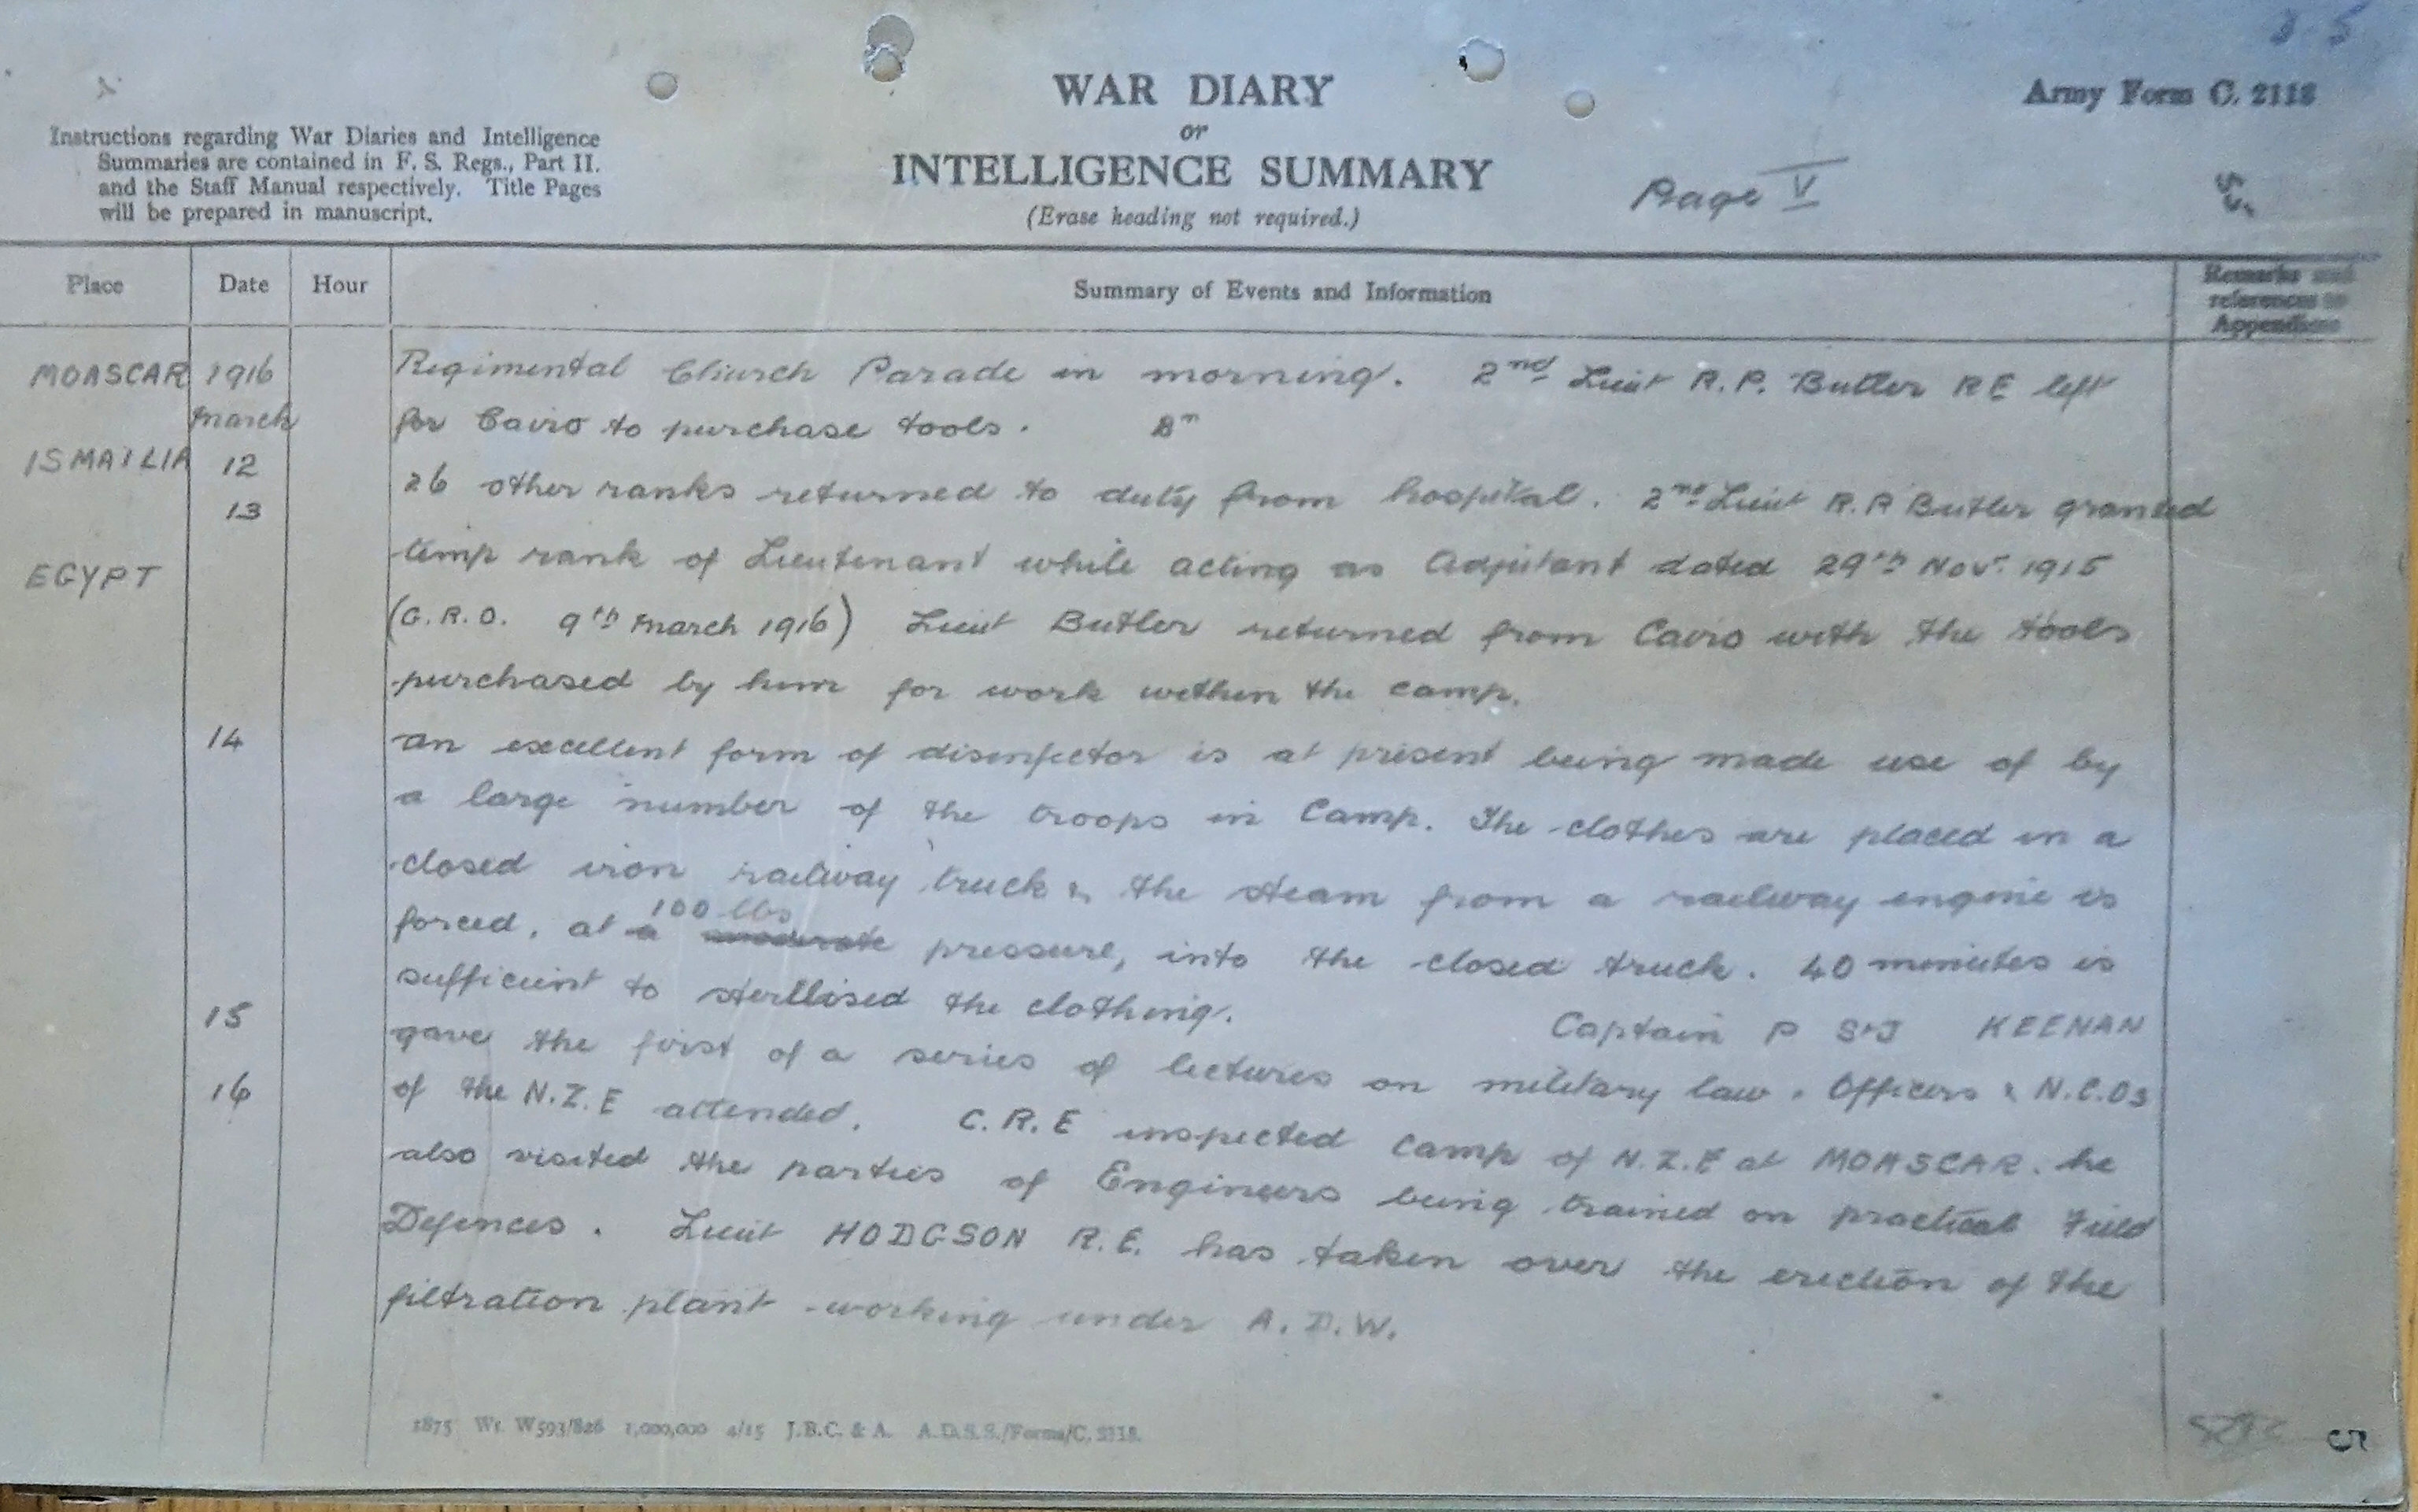 WAR DIARY
or
INTELLIGENCE SUMMARY
(Erase heading not required.)
Army Form C. 2118
Page V
Instructions regarding War Diaries and Intelligence
Summaries are contained in F. S. Regs., Part II.
and the Staff Manual respectively. Title Pages
will be prepared in manuscript.
Place Date Hour Summary of Events and Information Remarks and
references to
Appendices
MOASCAR 1916 Regimental Church Parade in morning. 2nd Lieut R.P. Butler RE left
March for Cairo to purchase tools.
ISMAILIA 12
26 other ranks returned to duty from hospital. 2nd Lieut R.P Butler granted
13
temp rank of Lieutenant while acting as Adjutant dated 29th Novr 1915
EGYPT
(G.R.O. 9th March 1916) Lieut Butler returned from Cairo with the tools
purchased by him for work within the camp.
14 an excellent form of disinfector is at present being made use of by
a large number of the troops in Camp. The clothes are placed in a
closed iron railway truck & the steam from a railway engine is
100 lbs
forced, at a moderate pressure, into the closed truck. 40 minutes is
sufficient to sterllised the clothing.
15 Captain P St J KEENAN
gave the first of a series of lectures on military law. Officers & N.C.Os
16 of the N.Z.E attended. C.R.E inspected Camp of N.Z.E at MOASCAR. he
also visited the parties of Engineers being trained on practical Field
Defences. Lieut HODGSON R.E. has taken over the erection of the
filtration plant working under A.D.W.
1875 Wt. W593/826 1,000,000 4/15 J.B.C. & A. A.D.S.S./Forms/C. 2118.
5